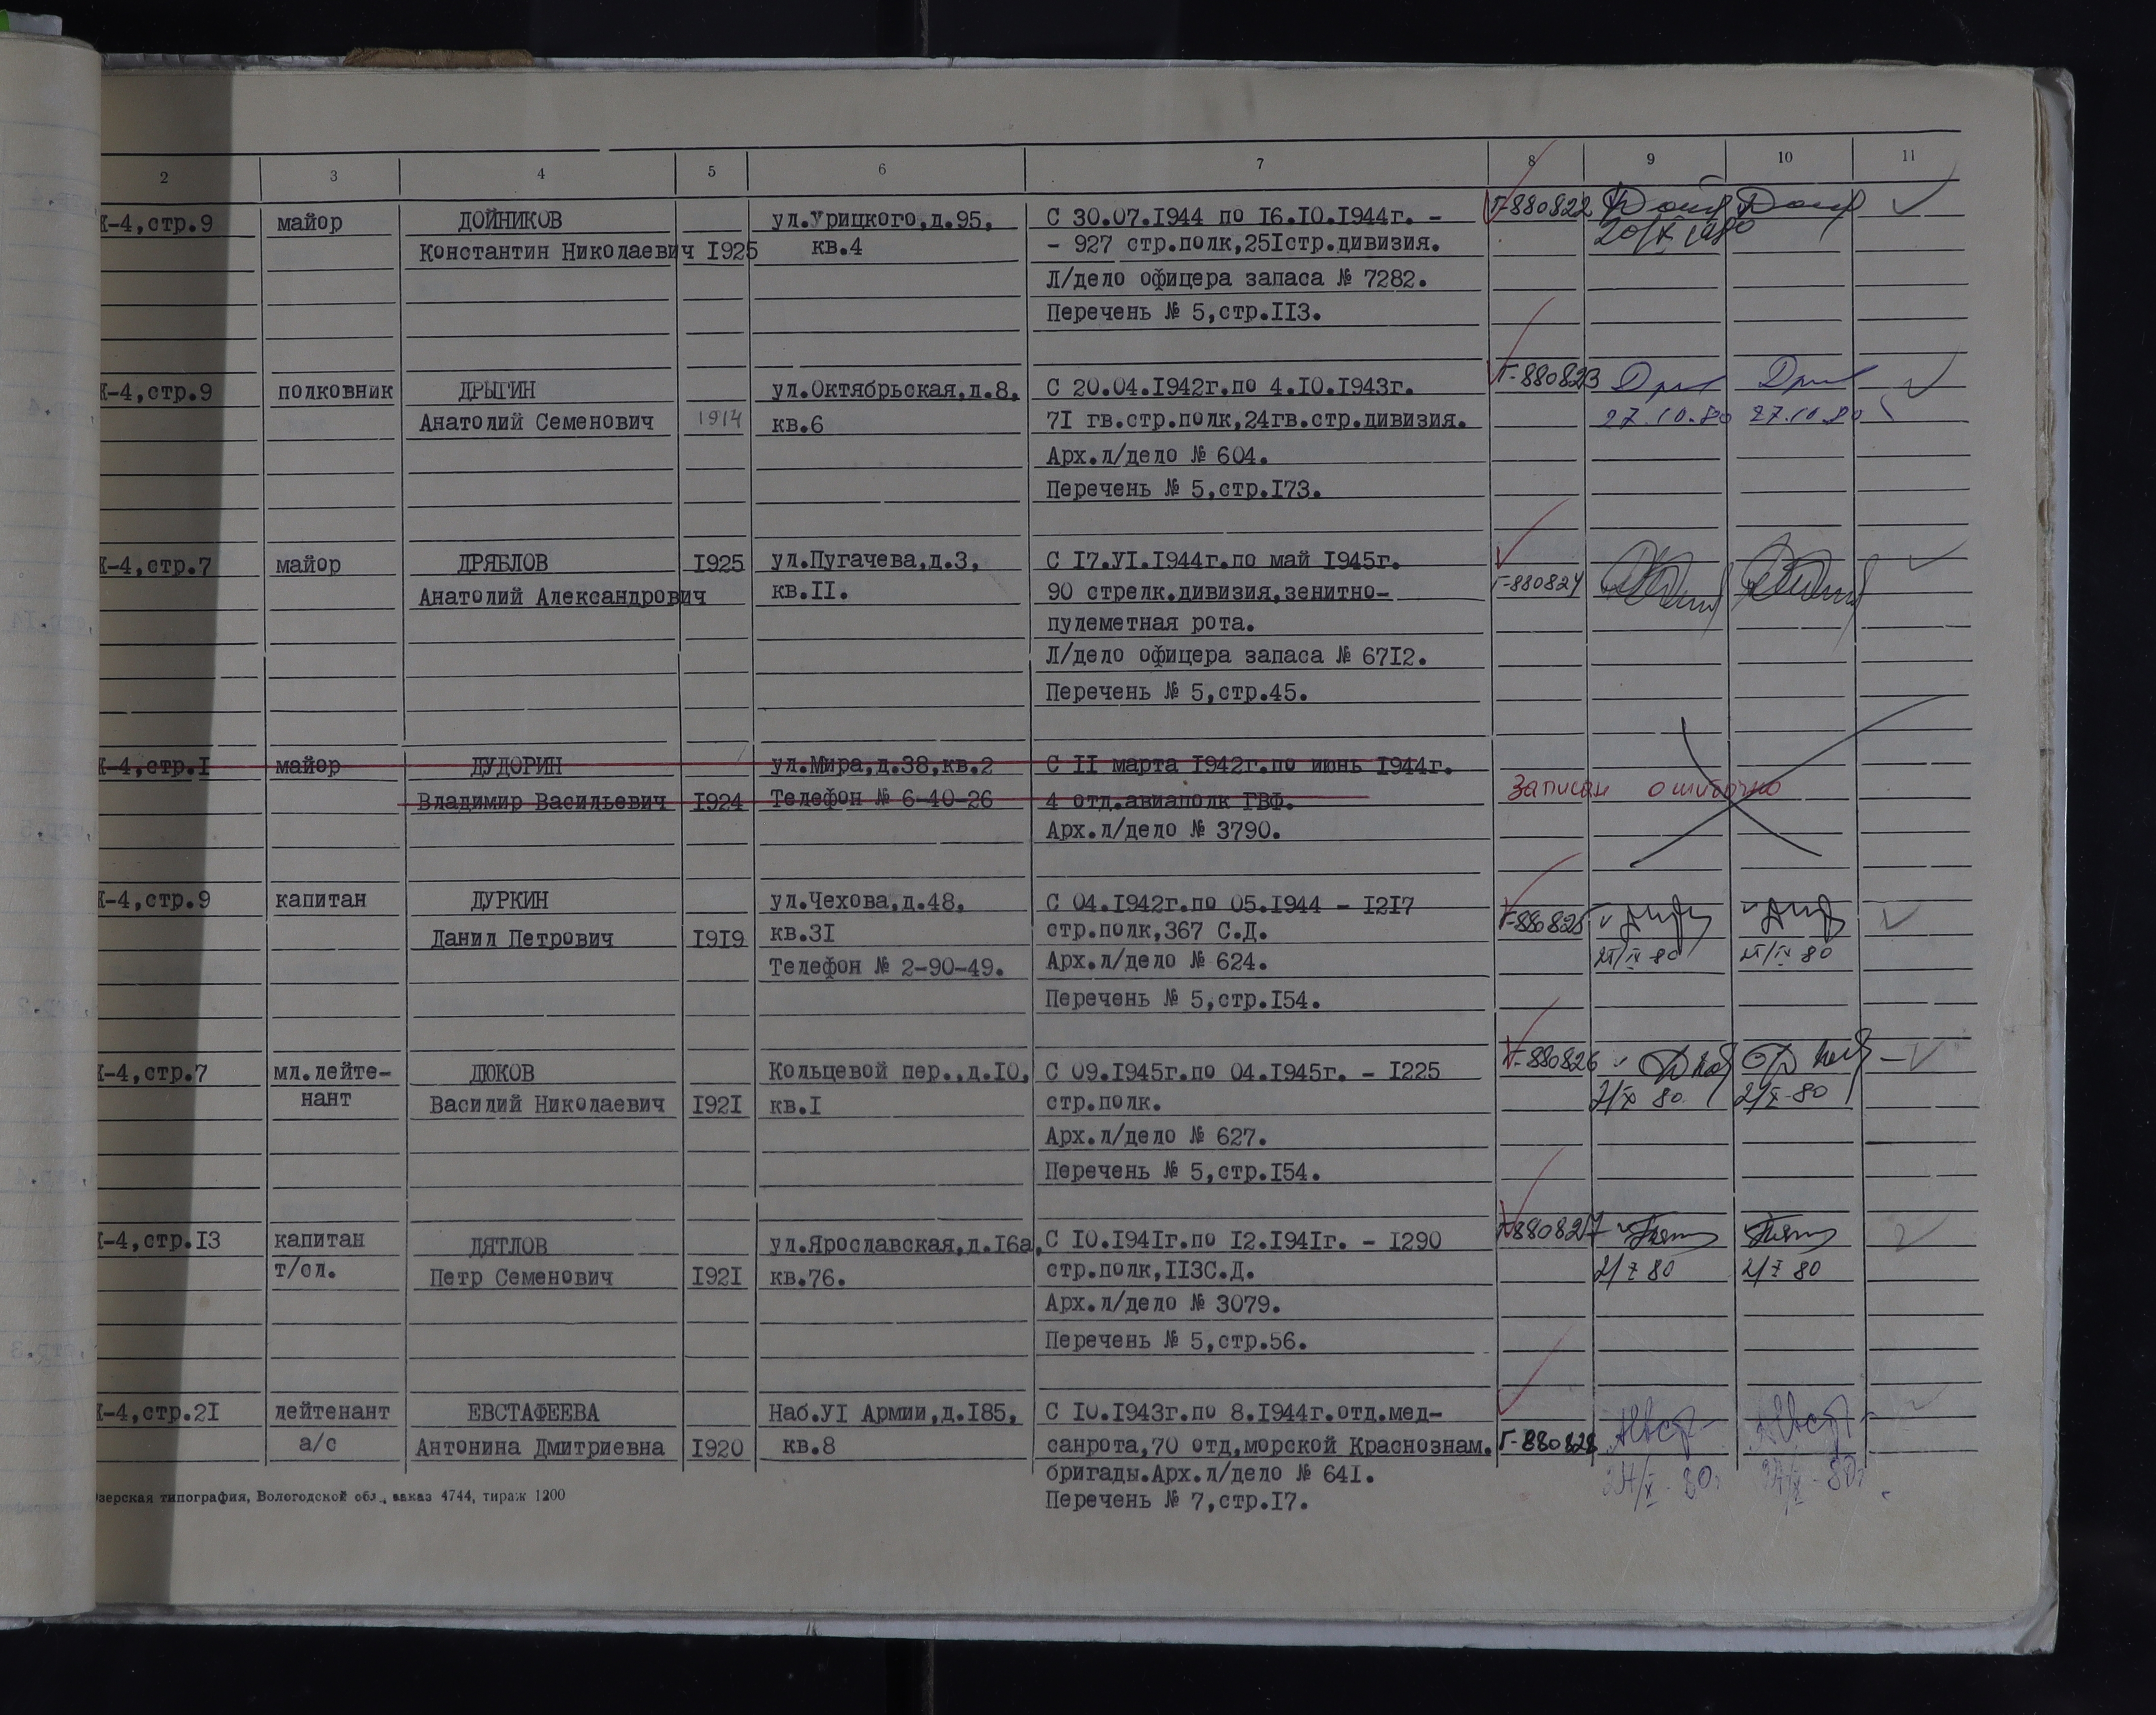 2 3 4 5 6 7 8 9 10 11
К-4,стр.9 майор ДОЙНИКОВ ул.Урицкого,д.95, С 30.07.I944 по I6.I0.I944г. - Г-880822
Константин Николаевич I925 кв.4 - 927 стр.полк,25Iстр.дивизия.
Л/дело офицера запаса № 7282.
Перечень № 5,стр.II3.
К-4,стр.9 полковник ДРЫГИН ул.Октябрьская,д.8, С 20.04.I942г.по 4.I0.I943г. Г-880823
Анатолий Семенович 1914 кв.6 7I гв.стр.полк,24гв.стр.дивизия. 27.10.80 27.10.80
Арх.л/дело № 604.
Перечень № 5,стр.I73.
К-4,стр.7 майор ДРЯБЛОВ I925 ул.Пугачева,д.3, С I7.УI.I944г.по май I945г.
Анатолий Александрович кв.II. 90 стрелк.дивизия,зенитно- Г-880824
пулеметная рота.
Л/дело офицера запаса № 67I2.
Перечень № 5,стр.45.
К-4,стр.I майор ДУДОРИН ул.Мира,д.38,кв.2 С II марта I942г.по июнь I944г. Записан ошибочно
Владимир Васильевич I924 Телефон № 6-40-26 4 отд.авиаполк ГВФ.
Арх.л/дело № 3790.
К-4,стр.9 капитан ДУРКИН ул.Чехова,д.48, С 04.I942г.по 05.I944 - I2I7 Г-880825
Данил Петрович I9I9 кв.3I стр.полк,367 С.Д.
Телефон № 2-90-49. Арх.л/дело № 624.
Перечень № 5,стр.I54.
К-4,стр.7 мл.лейте- ДЮКОВ Кольцевой пер.,д.I0, С 09.I945г.по 04.I945г. - I225 Г-880826
нант Василий Николаевич I92I кв.I стр.полк. 2/X 80 2/X-80
Арх.л/дело № 627.
Перечень № 5,стр.I54.
К-4,стр.I3 капитан ДЯТЛОВ ул.Ярославская,д.I6а, С I0.I94Iг.по I2.I94Iг. - I290 Г-880827
т/сл. Петр Семенович I92I кв.76. стр.полк,II3С.Д. 2/X 80 2/X 80
Арх.л/дело № 3079.
Перечень № 5,стр.56.
К-4,стр.2I лейтенант ЕВСТАФЕЕВА Наб.УI Армии,д.I85, С I0.I943г.по 8.I944г.отд.мед-
а/с Антонина Дмитриевна I920 кв.8 санрота,70 отд.морской Краснознам. Г-880828
бригады.Арх.л/дело № 64I.
Перечень № 7,стр.I7.
зерская типография, Вологодской обл., заказ 4744, тираж 1200